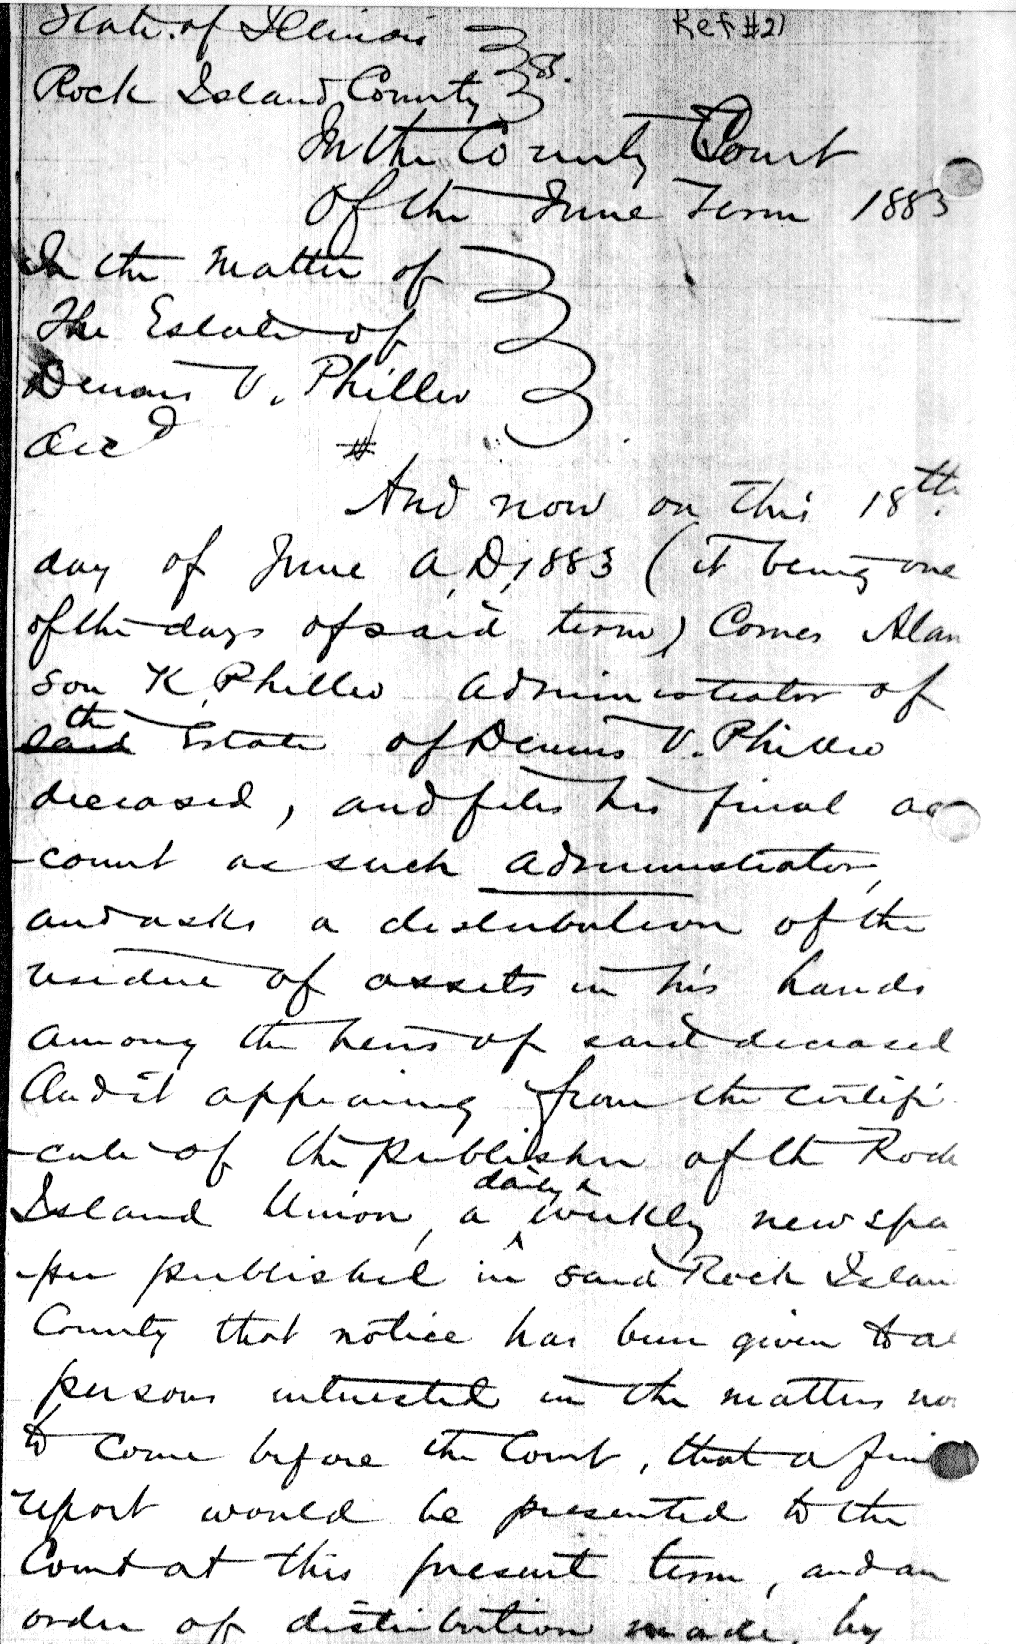 Ref #21
State of Illinois
Rock Island County } ss.
In the County Court
Of the June Term 1883
In the Matter of
The Estate of
Dennis V. Phillio
decd
And now on this 18th.
day of June A.D. 1883 (it being one
of the days of said term) Comes Alan
son K. Phillio administrator of
the Estate of Dennis V. Phillio
deceased, and files his final ac
-count as such administrator,
and asks a distribution of the
residue of assets in his hands
among the heirs of said deceased
And it appearing from the certifi
-cate of the publisher of the Rock
Island Union, a daily & weekly newspa
-per published in said Rock Islan
County that notice has been given to al
persons interested in the matters no
to come before the Court, that a fin
report would be presented to the
Court at this present term, and an
order of distribution made by